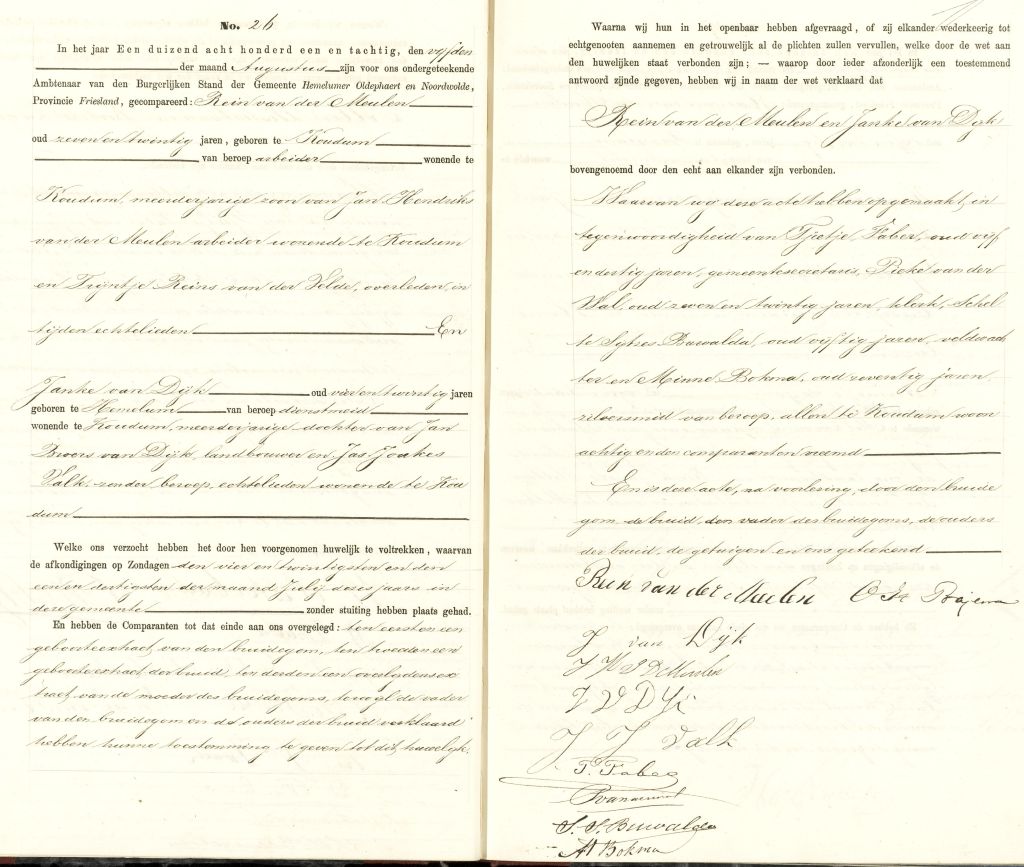 No. 26
In het jaar Een duizend acht honderd een en tachtig, den vijfden
der maand Augustus zijn voor ons ondergeteekende
Ambtenaar van den Burgerlijken Stand der Gemeente Hemelumer Oldephaert en Noordwolde,
Provincie Friesland, gecompareerd: Rein van der Meulen
oud zeven en twintig jaren, geboren te Koudum
van beroep arbeider wonende te
Koudum, meerderjarige zoon van Jan Hendriks
van der Meulen arbeider wonende te Koudum
en Trijntje Reins van der Velde, overleden, in
tijden echtelieden En
Janke van Dijk oud vier en twintig jaren
geboren te Hemelum van beroep dienstmeid
wonende te Koudum, meerderjarige dochter van Jan
Broers van Dijk, landbouwer en Jas Joukes
Valk, zonder beroep, echtelieden wonende te Kou
dum
Welke ons verzocht hebben het door hen voorgenomen huwelijk te voltrekken, waarvan
de afkondigingen op Zondagen den vier en twintigsten en den
een en dertigsten der maand July dezes jaars in
deze gemeente zonder stuiting hebben plaats gehad.
En hebben de Comparanten tot dat einde aan ons overgelegd: ten eersten een
geboorteextract van den bruidegom, ten tweeden een
geboorteextract der bruid, ten derden een overlijdensex
tract van de moeder des bruidegoms, terwijl de vader
van den bruidegom en de ouders der bruid verklaard
hebben hunne toestemming te geven tot dit huwelijk.
Waarna wij hun in het openbaar hebben afgevraagd, of zij elkander wederkeerig tot
echtgenooten aannemen en getrouwelijk al de plichten zullen vervullen, welke door de wet aan
den huwelijken staat verbonden zijn; — waarop door ieder afzonderlijk een toestemmend
antwoord zijnde gegeven, hebben wij in naam der wet verklaard dat
Rein van der Meulen en Janke van Dijk
bovengenoemd door den echt aan elkander zijn verbonden.
Waarvan wij deze acte hebben opgemaakt, in
tegenwoordigheid van Tjetje Faber, oud vijf
en dertig jaren, gemeentesecretaris, Pieke van der
Wal, oud zeven en twintig jaren, klerk, Schel
te Sytzes Buwalda, oud vijftig jaren, veldwach
ter en Minne Bokma, oud zeventig jaren,
zilversmid van beroep, allen te Koudum woon
achtig en den comparanten vreemd
En is deze acte, na voorlezing, door den bruide
gom de bruid, den vader des bruidegoms, de ouders
der bruid, de getuigen en ons geteekend
Rein van der Meulen
J van Dijk
J H v D Meulen
J V D Yk
J J Valk
T. Faber
S. S. Buwalda
M Bokma